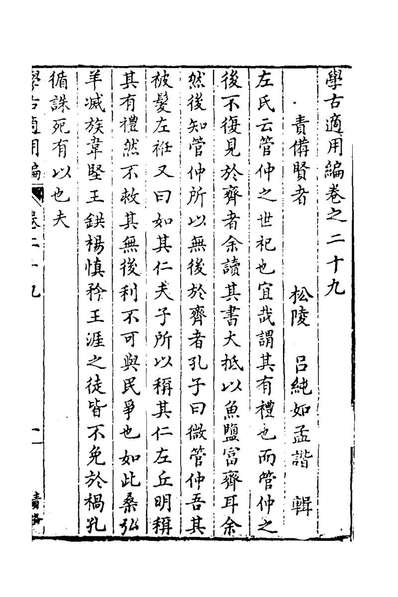 學古適用編卷之二十九
責備賢者
松陵 呂純如孟諧 輯
左氏云管仲之世祀也宜哉謂其有禮也而管仲之
後不復見於齊者余讀其書大抵以魚鹽富齊耳余
然後知管仲所以無後於齊者孔子曰微管仲吾其
被髮左袵又曰如其仁夫子所以稱其仁左丘明稱
其有禮然不救其無後利不可與民爭也如此桑弘
羊滅族韋堅王鉷楊慎矜王涯之徒皆不免於禍孔
循誅死有以也夫
學古適用編
卷二十九
一